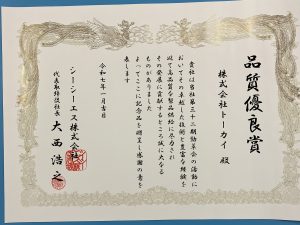 品質優良賞
株式会社トーカイ 殿
貴社は当社第三十二期勤革会の活動に
おいてその卓越した技術と豊富な経験を
以て高品質な製品供給に尽力され
その発展に貢献するところ誠に大なる
ものがありました
よってここに記念品を贈呈し感謝の意を
表します
令和七年一月吉日
シーシーエス株式会社
代表取締役社長 大西浩之